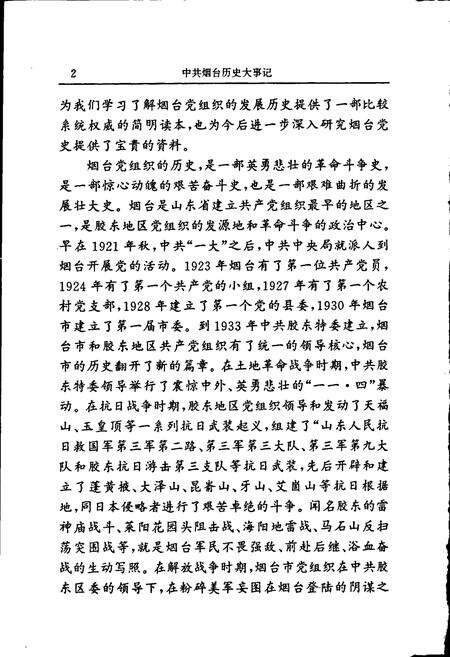 2 中共烟台历史大事记
为我们学习了解烟台党组织的发展历史提供了一部比较
系统权威的简明读本，也为今后进一步深入研究烟台党
史提供了宝贵的资料。
烟台党组织的历史，是一部英勇悲壮的革命斗争史，
是一部惊心动魄的艰苦奋斗史，也是一部艰难曲折的发
展壮大史。烟台是山东省建立共产党组织最早的地区之
一，是胶东地区党组织的发源地和革命斗争的政治中心。
早在1921年秋，中共“一大”之后，中共中央局就派人到
烟台开展党的活动。1923年烟台有了第一位共产党员，
1924年有了第一个共产党的小组，1927年有了第一个农
村党支部，1928年建立了第一个党的县委，1930年烟台
市建立了第一届市委。到1933年中共胶东特委建立，烟
台市和胶东地区共产党组织有了统一的领导核心，烟台
市的历史翻开了新的篇章。在土地革命战争时期，中共胶
东特委领导举行了震惊中外、英勇悲壮的“一一·四”暴
动。在抗日战争时期，胶东地区党组织领导和发动了天福
山、玉皇顶等一系列抗日武装起义，组建了“山东人民抗
日救国军第三军第二路、第三军第三大队、第三军第九大
队和胶东抗日游击第三支队等抗日武装，先后开辟和建
立了蓬黄掖、大泽山、昆嵛山、牙山、艾崮山等抗日根据
地，同日本侵略者进行了艰苦卓绝的斗争。闻名胶东的雷
神庙战斗、莱阳花园头阻击战、海阳地雷战、马石山反扫
荡突围战等，就是烟台军民不畏强敌、前赴后继、浴血奋
战的生动写照。在解放战争时期，烟台市党组织在中共胶
东区委的领导下，在粉碎美军妄图在烟台登陆的阴谋之